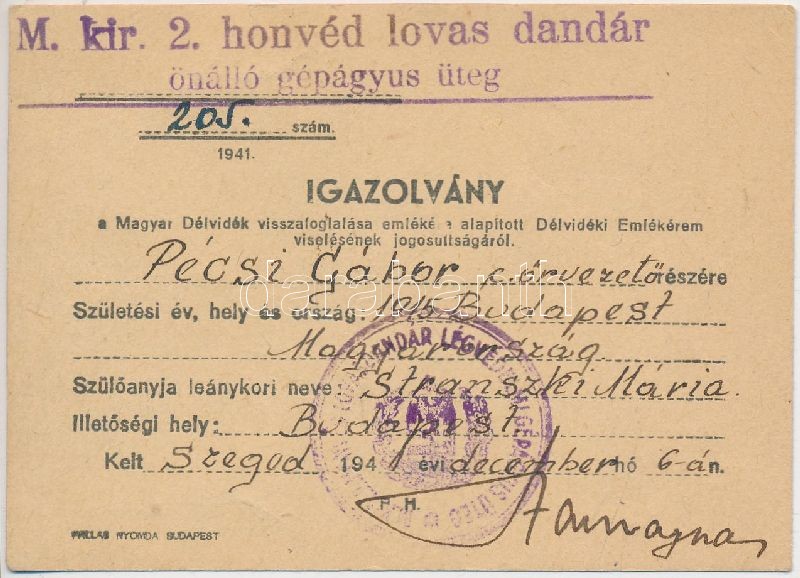 M. kir. 2. honvéd lovas dandár
önálló gépágyus üteg
205. szám.
1941.
IGAZOLVÁNY
a Magyar Délvidék visszafoglalása emléké a alapított Délvidéki Emlékérem
viselésének jogosultságáról.
Pécsi Gábor c. őrvezető részére
Születési év, hely és ország: 1915 Budapest
Magyarország
Szülőanyja leánykori neve: Stranszki Mária.
Illetőségi hely: Budapest.
Kelt Szeged 1941 évi december hó 6-án.
P. H.
DANDÁR LÉGVÉDELMI GÉPÁGYÚS ÜTEG
PALLAS NYOMDA BUDAPEST
darabanth